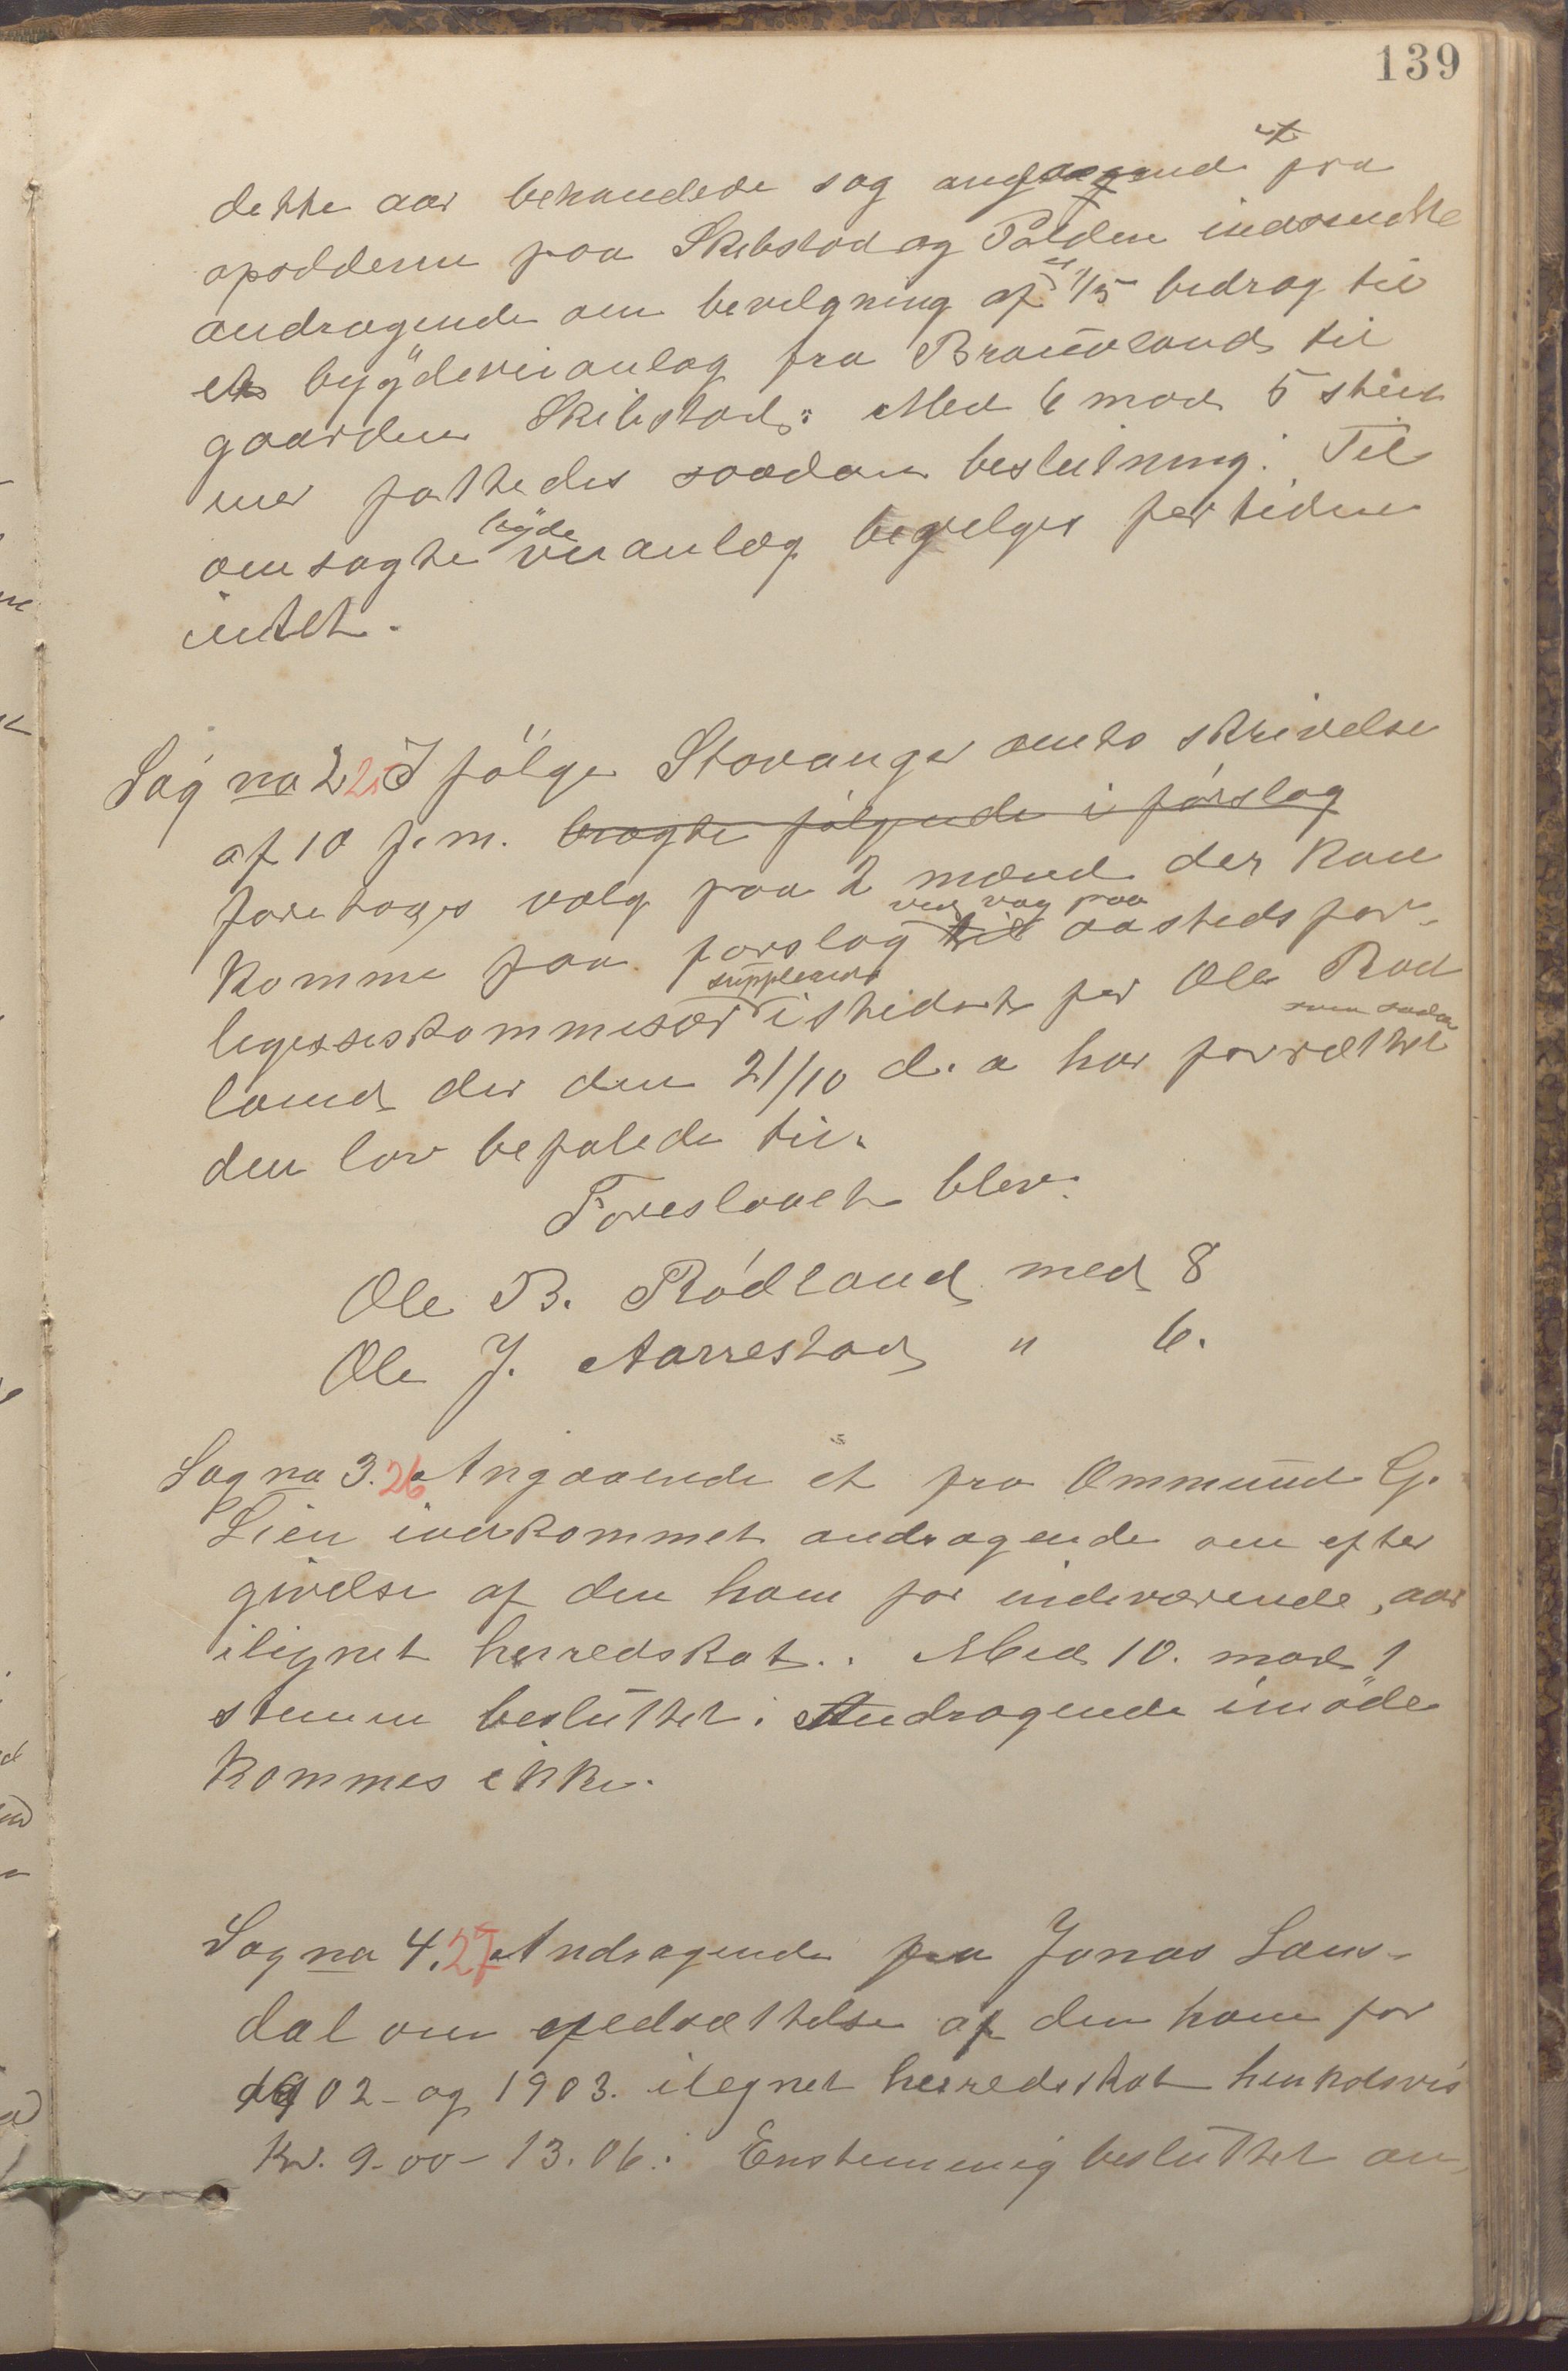 139
dette aar behandlede sag angaaende et fra
opsidderne paa Skibstad og Polden indsendte
andragende om bevilgning af 1/5 bidrag til
et bygdeveianlæg fra Brauvland til
gaarden Skibstad: Med 6 mod 5 stem
mer fattedes saadan beslutning: Til
omsagte bygde veianlæg bevelges for tiden
intet.
Sag no 2. 25 I følge Stavanger amts skrivelse
af 10 f. m. bragte følgende i forslag
foretages valg paa 2 mænd der kan
komme paa forslag til ved valg paa aasteds for-
legelseskommisær suppleant istedet for Ole Rød
land der den 21/10 d. a har forrættet som sadan
den lov befalede tid.
Foreslaaet blev:
Ole B. Rødland med 8
Ole J. Aarrestad " 6.
Sag no 3. 26 Angaaende et fra Ommund G.
Lien indkommet andragende om efter
givelse af den ham for indeværende aar
ilignet herredskat.. Med 10. mod 1
stemm besluttet: Andragende imøde
kommes ikke.
Sag no 4. 27 Andragende fra Jonas Laus-
dal om nedsættelse af den ham for
1902 - og 1903. ilegnet herredsskat henholdsvis
Kr. 9.00 - 13.06: Enstemmig besluttet an-